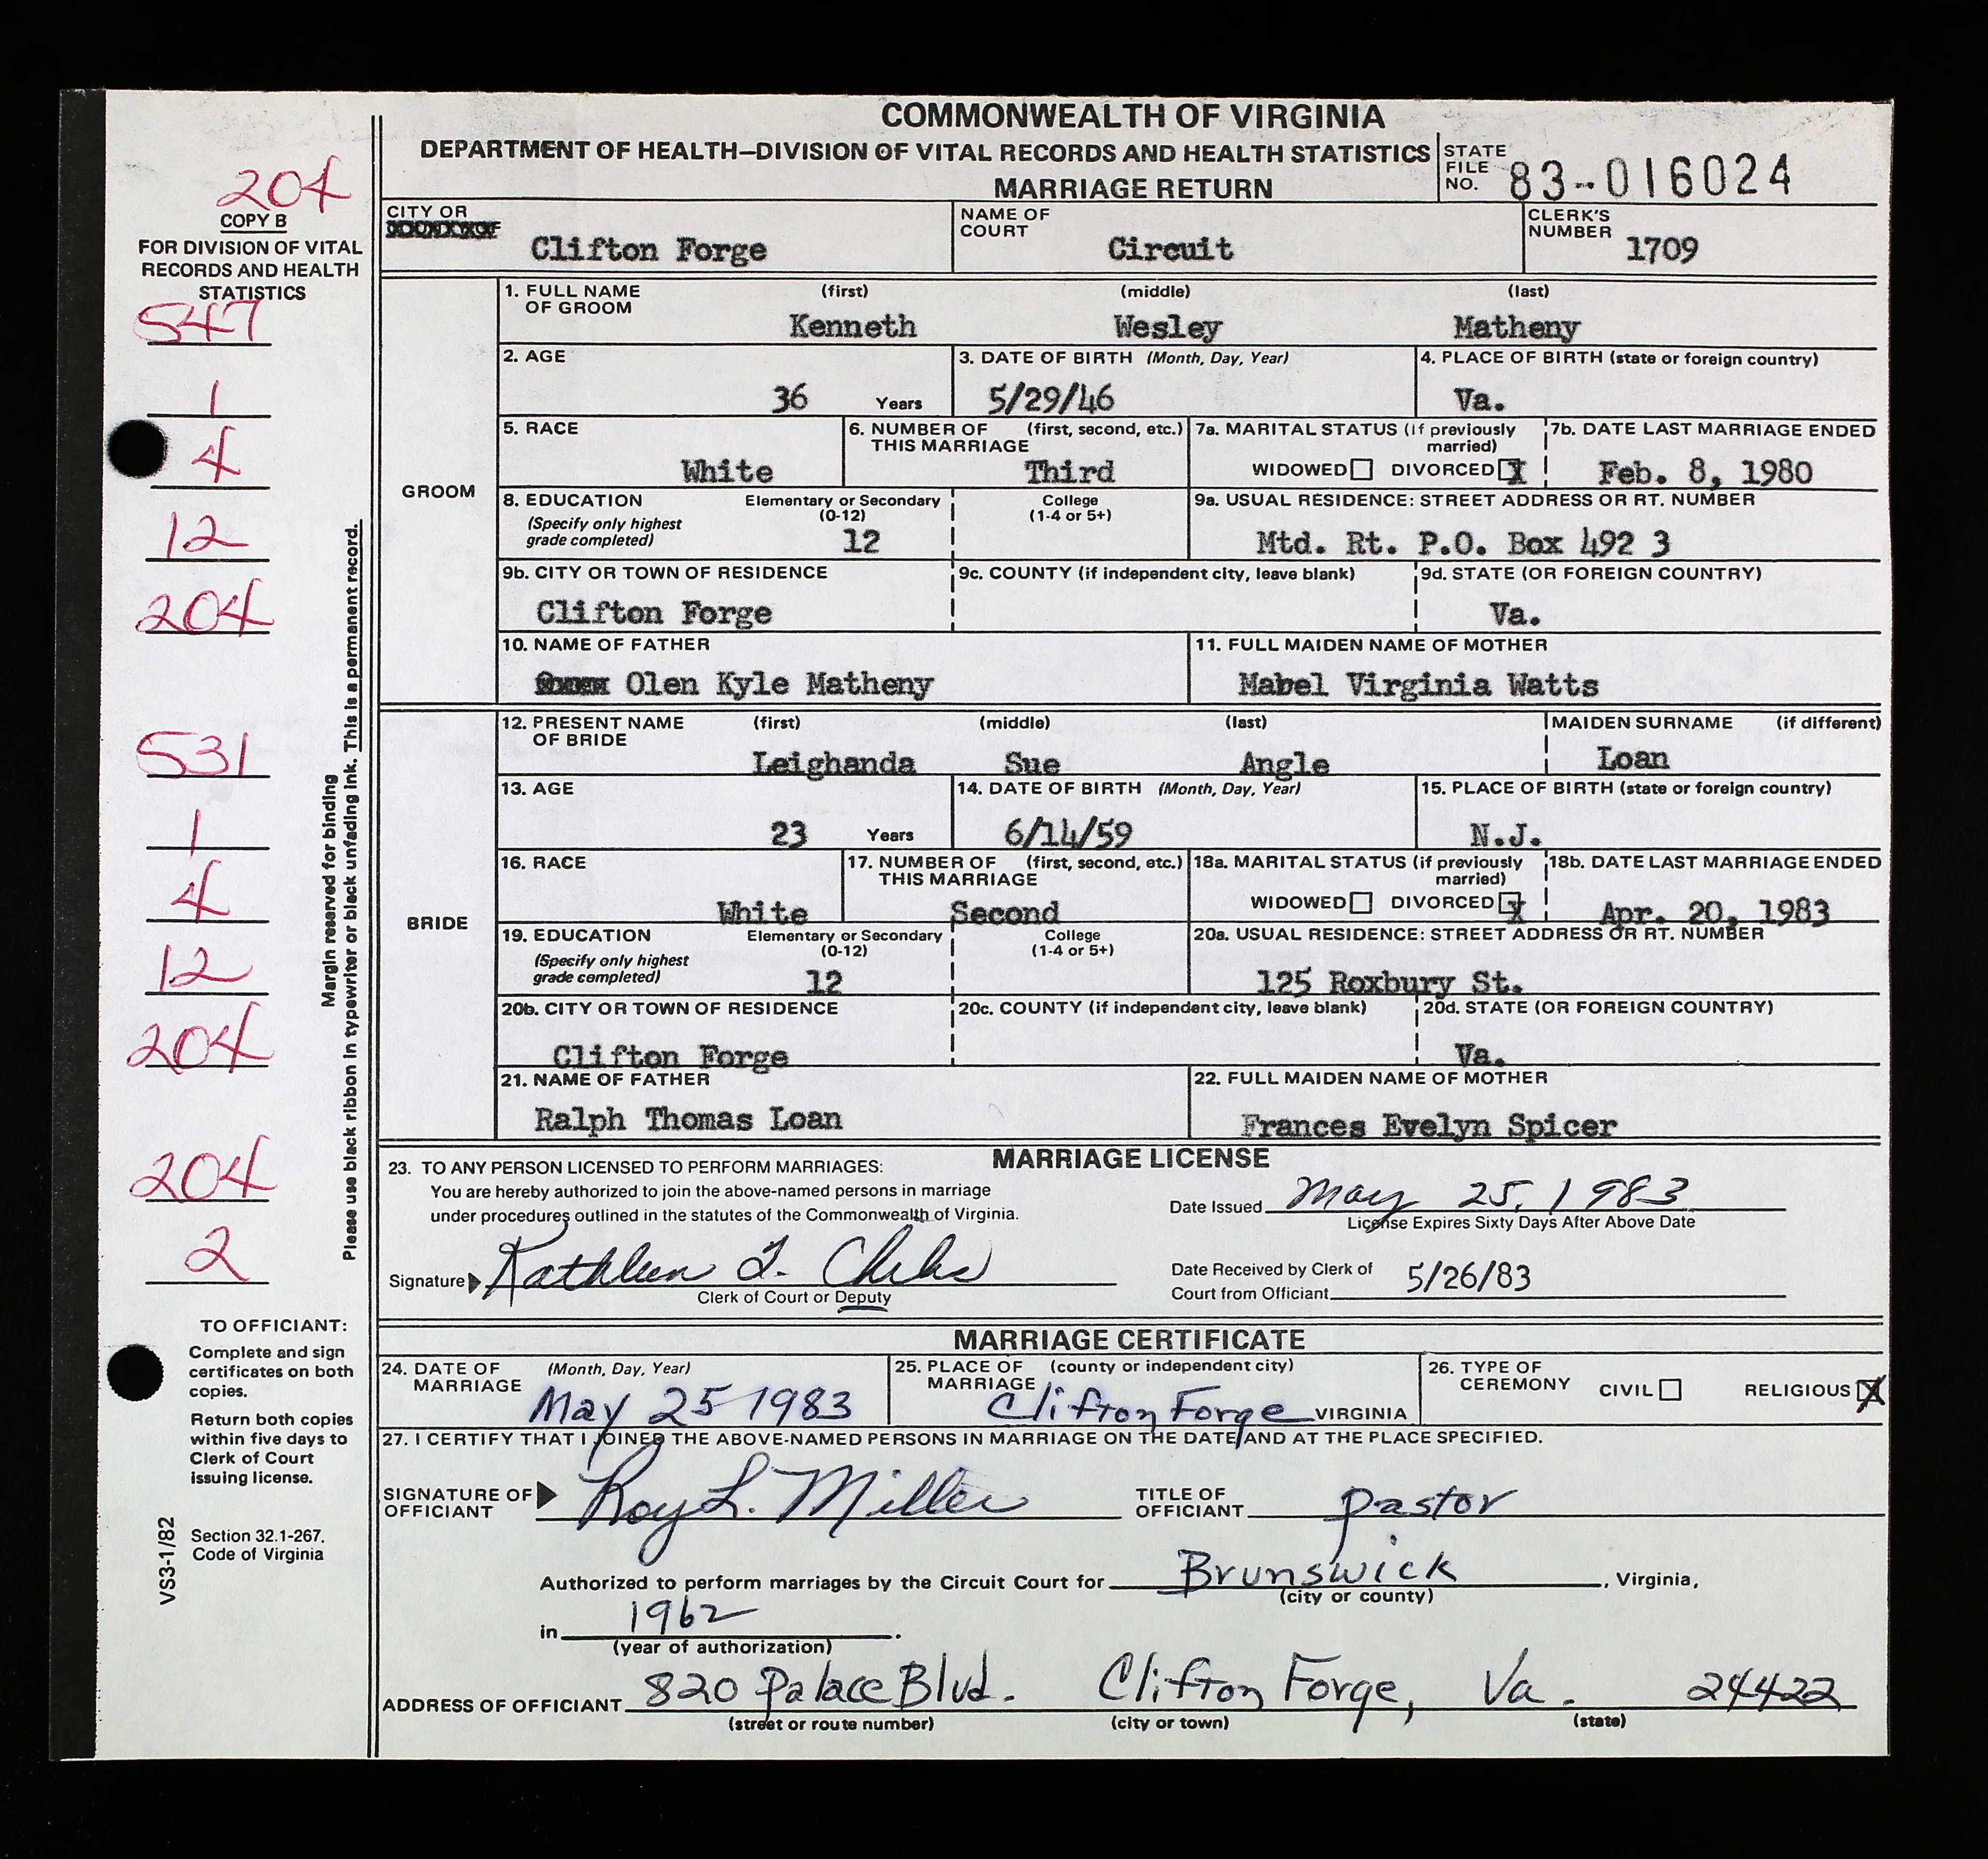 COMMONWEALTH OF VIRGINIA
DEPARTMENT OF HEALTH—DIVISION OF VITAL RECORDS AND HEALTH STATISTICS
MARRIAGE RETURN
STATE FILE NO. 83-016024
204
COPY B
FOR DIVISION OF VITAL
RECORDS AND HEALTH
STATISTICS
547
1
4
12
204
531
1
4
12
204
204
2
Margin reserved for binding
Please use black ribbon in typewriter or black unfading ink. This is a permanent record.
TO OFFICIANT:
Complete and sign
certificates on both
copies.
Return both copies
within five days to
Clerk of Court
issuing license.
Section 32.1-267,
Code of Virginia
VS3-1/82
CITY OR
Clifton Forge
NAME OF COURT
Circuit
CLERK'S NUMBER
1709
GROOM
1. FULL NAME OF GROOM (first) (middle) (last)
Kenneth Wesley Matheny
2. AGE
36 Years
3. DATE OF BIRTH (Month, Day, Year)
5/29/46
4. PLACE OF BIRTH (state or foreign country)
Va.
5. RACE
White
6. NUMBER OF THIS MARRIAGE (first, second, etc.)
Third
7a. MARITAL STATUS (if previously married)
WIDOWED DIVORCED X
7b. DATE LAST MARRIAGE ENDED
Feb. 8, 1980
8. EDUCATION (Specify only highest grade completed)
Elementary or Secondary (0-12)
12
College (1-4 or 5+)
9a. USUAL RESIDENCE: STREET ADDRESS OR RT. NUMBER
Mtd. Rt. P.O. Box 492 3
9b. CITY OR TOWN OF RESIDENCE
Clifton Forge
9c. COUNTY (if independent city, leave blank)
9d. STATE (OR FOREIGN COUNTRY)
Va.
10. NAME OF FATHER
Olen Kyle Matheny
11. FULL MAIDEN NAME OF MOTHER
Mabel Virginia Watts
BRIDE
12. PRESENT NAME OF BRIDE (first) (middle) (last)
Leighanda Sue Angle
MAIDEN SURNAME (if different)
Loan
13. AGE
23 Years
14. DATE OF BIRTH (Month, Day, Year)
6/14/59
15. PLACE OF BIRTH (state or foreign country)
N.J.
16. RACE
White
17. NUMBER OF THIS MARRIAGE (first, second, etc.)
Second
18a. MARITAL STATUS (if previously married)
WIDOWED DIVORCED X
18b. DATE LAST MARRIAGE ENDED
Apr. 20, 1983
19. EDUCATION (Specify only highest grade completed)
Elementary or Secondary (0-12)
12
College (1-4 or 5+)
20a. USUAL RESIDENCE: STREET ADDRESS OR RT. NUMBER
125 Roxbury St.
20b. CITY OR TOWN OF RESIDENCE
Clifton Forge
20c. COUNTY (if independent city, leave blank)
20d. STATE (OR FOREIGN COUNTRY)
Va.
21. NAME OF FATHER
Ralph Thomas Loan
22. FULL MAIDEN NAME OF MOTHER
Frances Evelyn Spicer
MARRIAGE LICENSE
23. TO ANY PERSON LICENSED TO PERFORM MARRIAGES:
You are hereby authorized to join the above-named persons in marriage
under procedures outlined in the statutes of the Commonwealth of Virginia.
Date Issued May 25, 1983
License Expires Sixty Days After Above Date
Signature Kathleen
Clerk of Court or Deputy
Date Received by Clerk of
Court from Officiant 5/26/83
MARRIAGE CERTIFICATE
24. DATE OF MARRIAGE (Month, Day, Year)
May 25 1983
25. PLACE OF MARRIAGE (county or independent city)
Clifton Forge VIRGINIA
26. TYPE OF CEREMONY CIVIL RELIGIOUS X
27. I CERTIFY THAT I JOINED THE ABOVE-NAMED PERSONS IN MARRIAGE ON THE DATE AND AT THE PLACE SPECIFIED.
SIGNATURE OF OFFICIANT Roy L. Miller
TITLE OF OFFICIANT pastor
Authorized to perform marriages by the Circuit Court for Brunswick, Virginia,
(city or county)
in 1962.
(year of authorization)
ADDRESS OF OFFICIANT 820 Palace Blvd. Clifton Forge, Va. 24422
(street or route number) (city or town) (state)